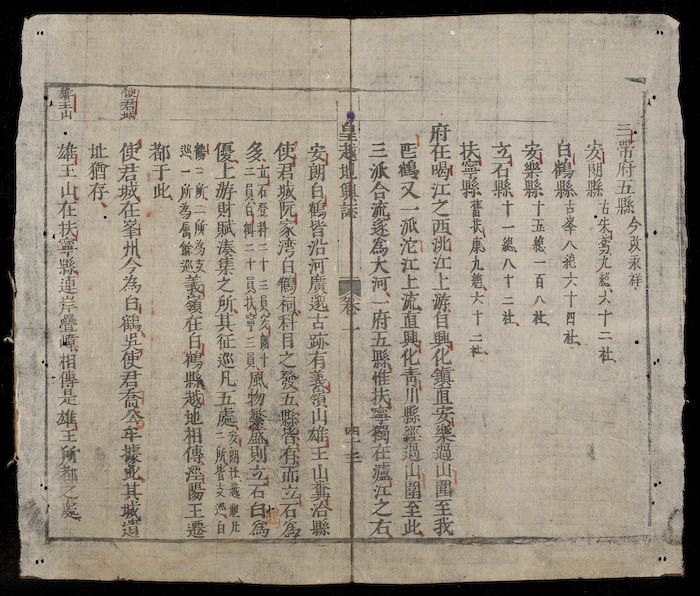 三帶府五縣 今改永祥
安朗縣 古朱鳶九總六十二社
白鶴縣 古峯八總六十四社
安樂縣 十五總一百八社
立石縣 十一總八十二社
扶寧縣 舊扶康九總六十二社
府在喝江之西洮江上游自興化鎮直安樂過山圍至我
白鶴又一派沱江上流直興化青川縣經過山圍至此
三派合流遂為大河一府五縣惟扶寧獨在瀘江之右
皇越地輿誌 卷一 四十三
安朗白鶴皆沿河廣邈古跡有義領山雄王山糞治縣
使君城阮家湾白鶴祠科目之發五縣皆有而立石為
多 立石登科二十三員安朗十二員白鶴二十員扶寧三員 風物繁盛則立石白為
優上游財賦湊集之所其征巡凡五處 安朗社越
鶴二所二所為支巡一所為舊餘巡 義嶺在白鶴縣越地相傳涇陽王遷
都于此
使君城 使君城在峯州今為白鶴吳使君喬公罕據此其城遺
址猶存
雄王山 雄王山在扶寧縣連岸疊嶂相傳是雄王所都之處